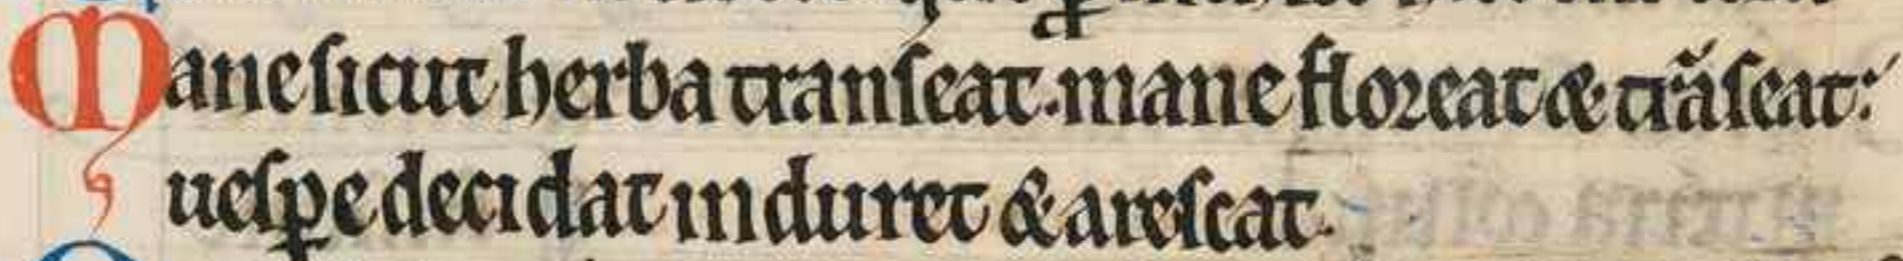 Mane sicut herba transeat. mane floreat & trãseat:
uesꝑe decidat induret & arescat.